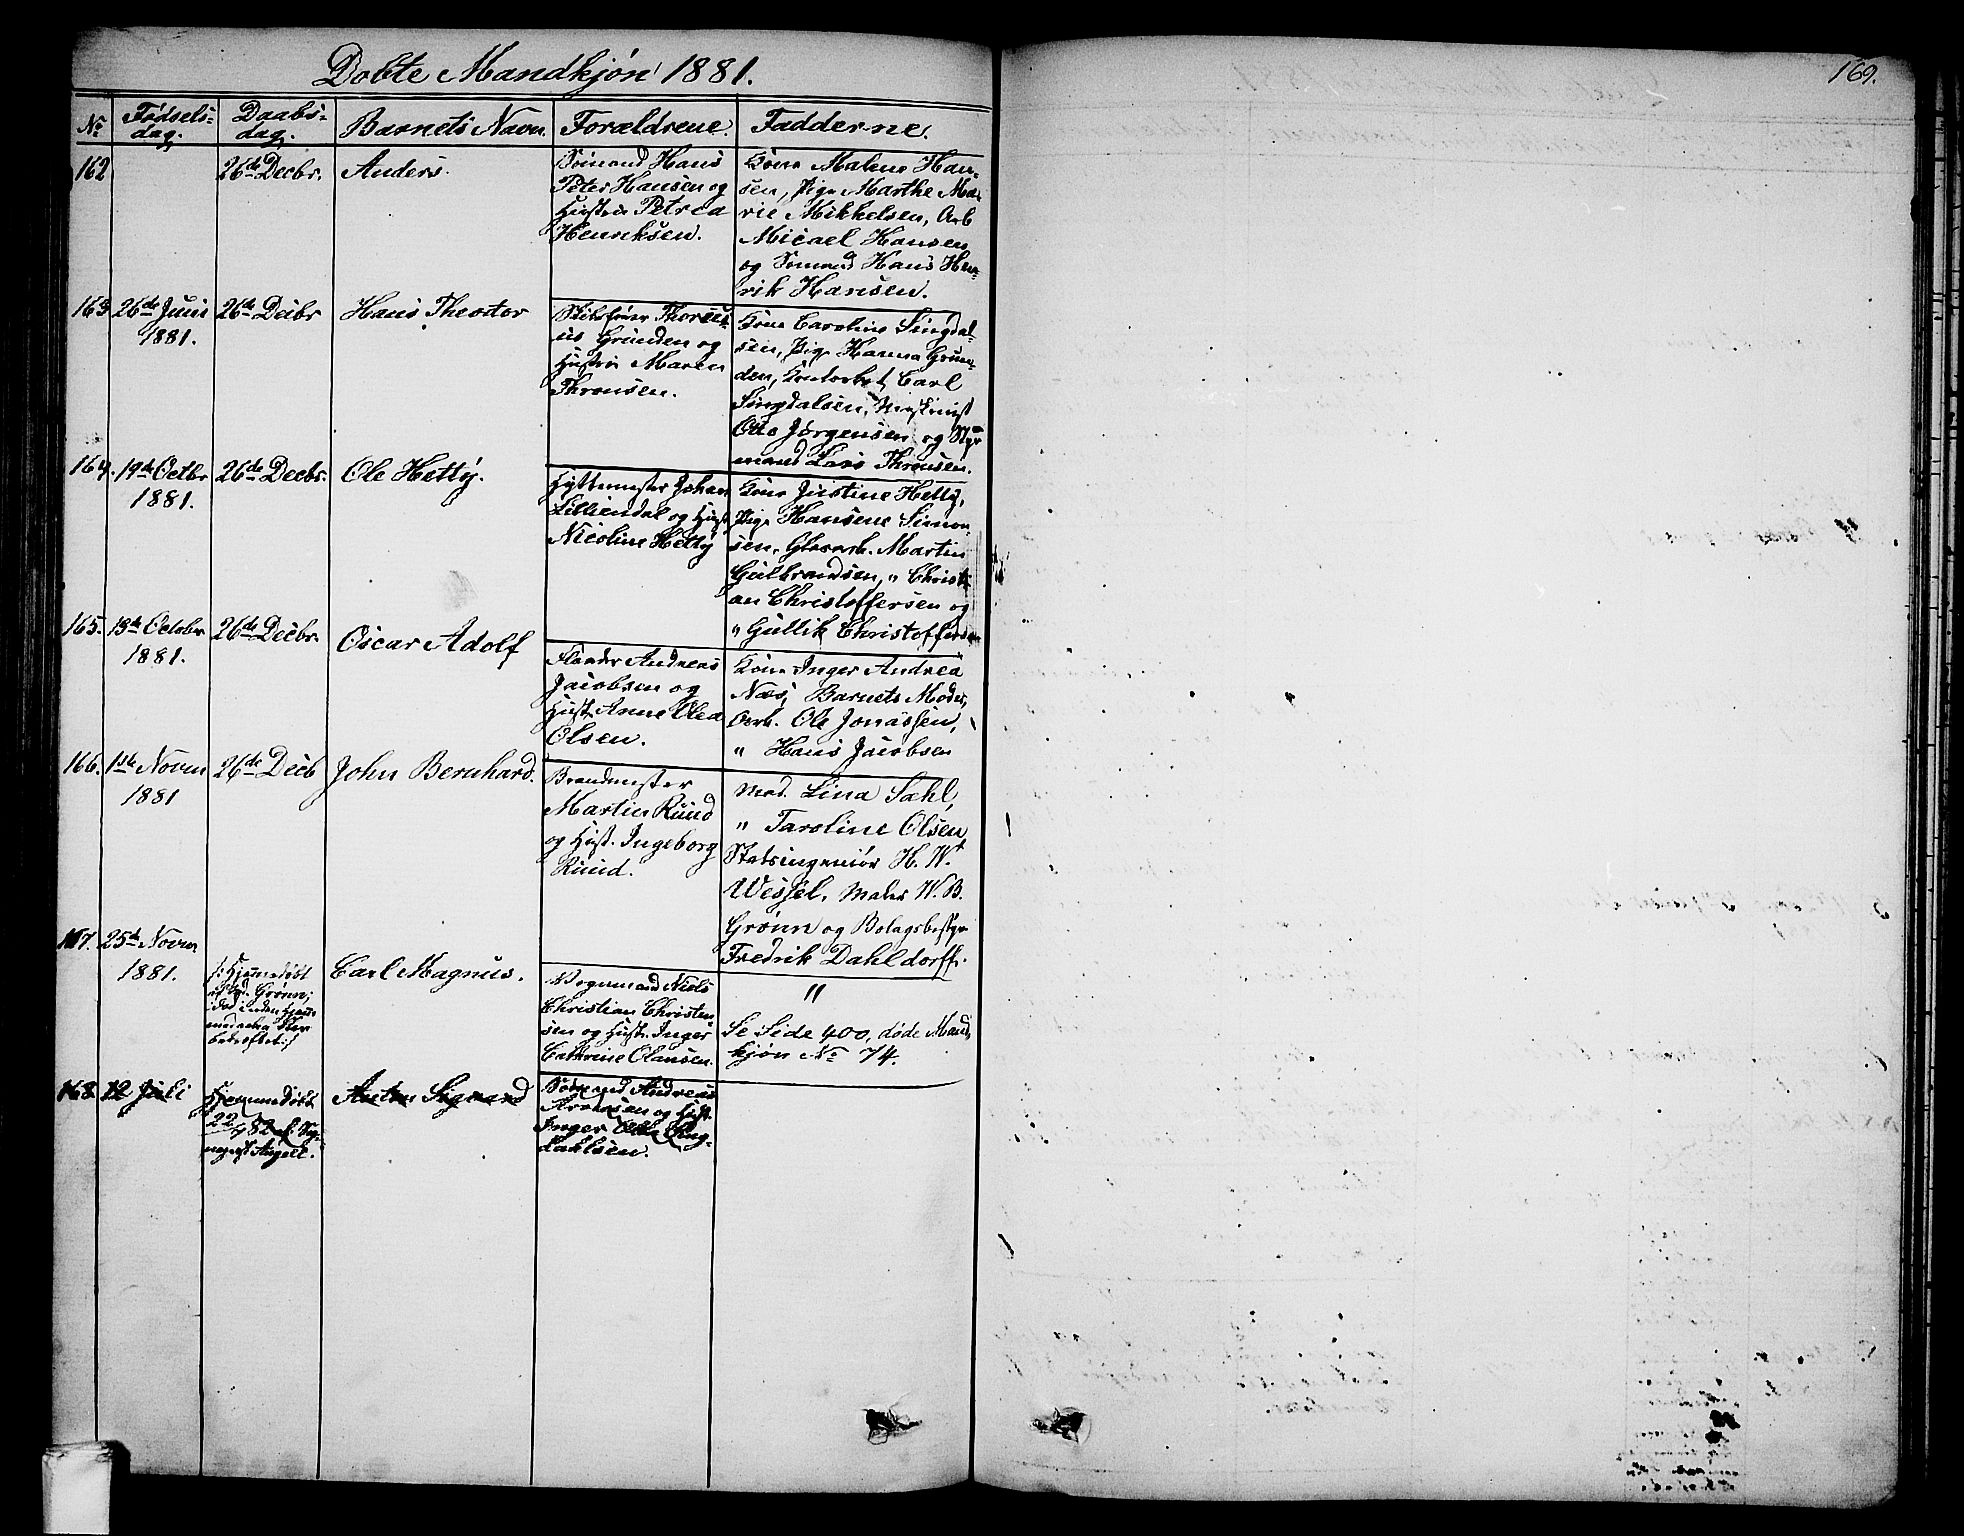 Dobte Mandkjón 1881.
169.
No
Fødsels-
dag.
Daabs-
dag.
Barnets Navn.
Forældrene.
Fadderne.
162
26de Decbr.
Anders.
Sømand Hans
Peter Hansen og
Hustru Petrea
Henriksen.
Kone Malene Han-
sen, Pige Marthe Ma-
rie Mikkelsen, Arb
Micael Hansen
og Sømand Hans Hen-
rik Hansen.
163
26de Juni
1881.
26de Decbr
Hans Theodor
Skibsfører
Grunden og
Hustru Maren
Thronsen.
Kone Caroline Singdal-
sen, Pige Hanna Grun-
den, Kontorbet. Carl
Singdalsen, Maskinist
Otto Jørgensen og Styr-
mand Lars Thronsen.
164.
19de Octbr
1881.
26de Decbr.
Ole Hetty.
Hyttemester Johan
Lilliendal og Hust.
Nicoline Hetty
Kone Justine Hetty,
Pige Hansene Simon-
sen, Glasarb. Martin
Gulbrandsen, " Christi-
an Christoffersen og
" Gullik Christoffersen
165.
13de October
1881.
26de Decbr.
Oscar Adolf
Andreas
Jacobsen og
Hust. Anne Olea
Olsen.
Kone Inger Andrea
Næs, Barnets Moder,
Ole Jonassen,
" Hans Jacobsen
166.
1ste Novm
1881
26de Decb
John Bernhard.
Brandmester
Martin Ruud
og Hust. Ingeborg
Ruud.
Mad. Lina Sahl,
" Taroline Olsen
Statsingeniør H. W.
Wessel, Maler W. B.
Grønn og Bolagsbestyr
Fredrik Dahldorff.
167.
25de Novm
1881.
/: Hjemmedøbt
af Grønn;
død inden Hjem-
medaaben
:/
Carl Magnus.
Vognmand Niels
Christian Christen-
sen og Hust. Inger
Cathrine Olausen.
"
Se Side 400, døde Mand-
kjøn No 74.
168
12 Juli
Hjemmedøbt
22/9 82 af
Angell.
Anton Sigvard
Sømand Andreas
og Hust.
Inger Sing-
dahlsen.